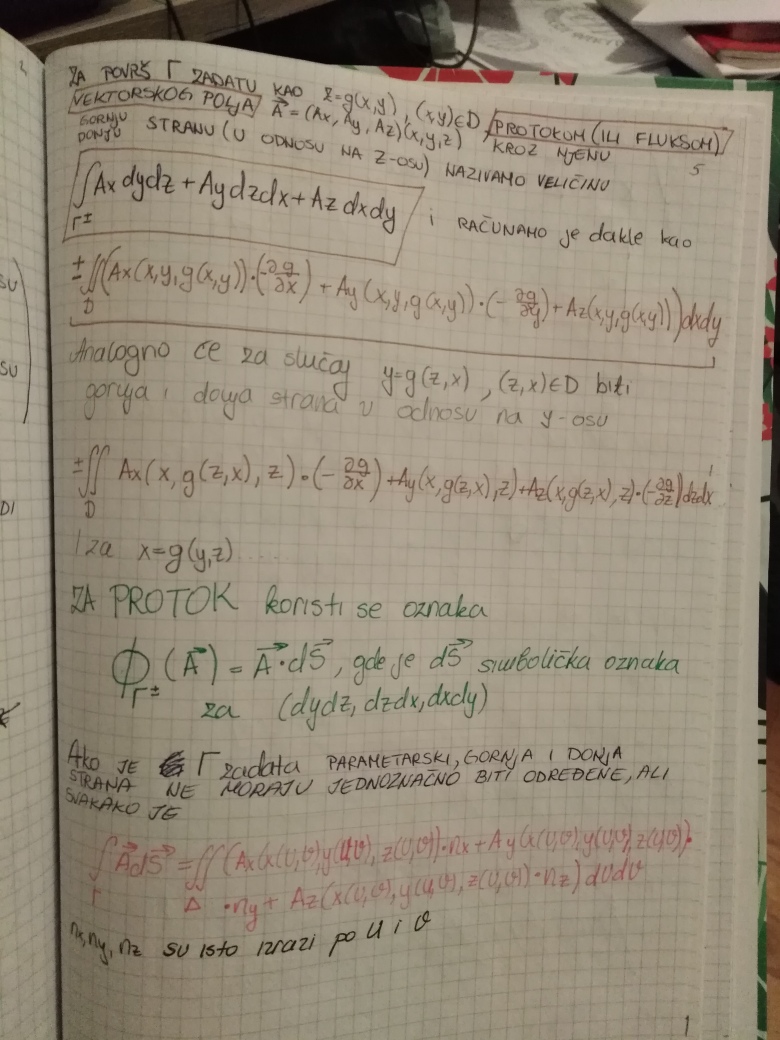 ZA POVRŠ Γ ZADATU KAO z=g(x,y), (x,y)∈D, PROTOKOM (ILI FLUKSOM)
VEKTORSKOG POLJA A⃗ = (Ax, Ay, Az)(x,y,z) KROZ NJENU
GORNJU
DONJU STRANU (U ODNOSU NA Z-OSU) NAZIVAMO VELIČINU
5
∫_{Γ±} Ax dydz + Ay dzdx + Az dxdy i RAČUNAMO je dakle kao
±∬_D (Ax(x,y,g(x,y))·(-∂g/∂x) + Ay(x,y,g(x,y))·(-∂g/∂y) + Az(x,y,g(x,y)))dxdy
Analogno će za slučaj y=g(z,x), (z,x)∈D biti
gornja i donja strana u odnosu na y-osu
±∬_D Ax(x,g(z,x),z)·(-∂g/∂x)+Ay(x,g(z,x),z)+Az(x,g(z,x),z)·(-∂g/∂z)dzdx
I za x=g(y,z)....
ZA PROTOK koristi se oznaka
Φ_{Γ±}(A⃗) = A⃗·dS⃗, gde je dS⃗ simbolička oznaka
za (dydz, dzdx, dxdy)
AKO JE Γ zadata PARAMETARSKI, GORNJA I DONJA
STRANA NE MORAJU JEDNOZNAČNO BITI ODREĐENE, ALI
SVAKAKO JE
∫_Γ A⃗dS⃗ = ∬_Δ (Ax(x(u,v),y(u,v),z(u,v))·nx + Ay(x(u,v),y(u,v),z(u,v))·
·ny + Az(x(u,v),y(u,v),z(u,v))·nz)dudv
nx, ny, nz su isto izrazi po u i v
1